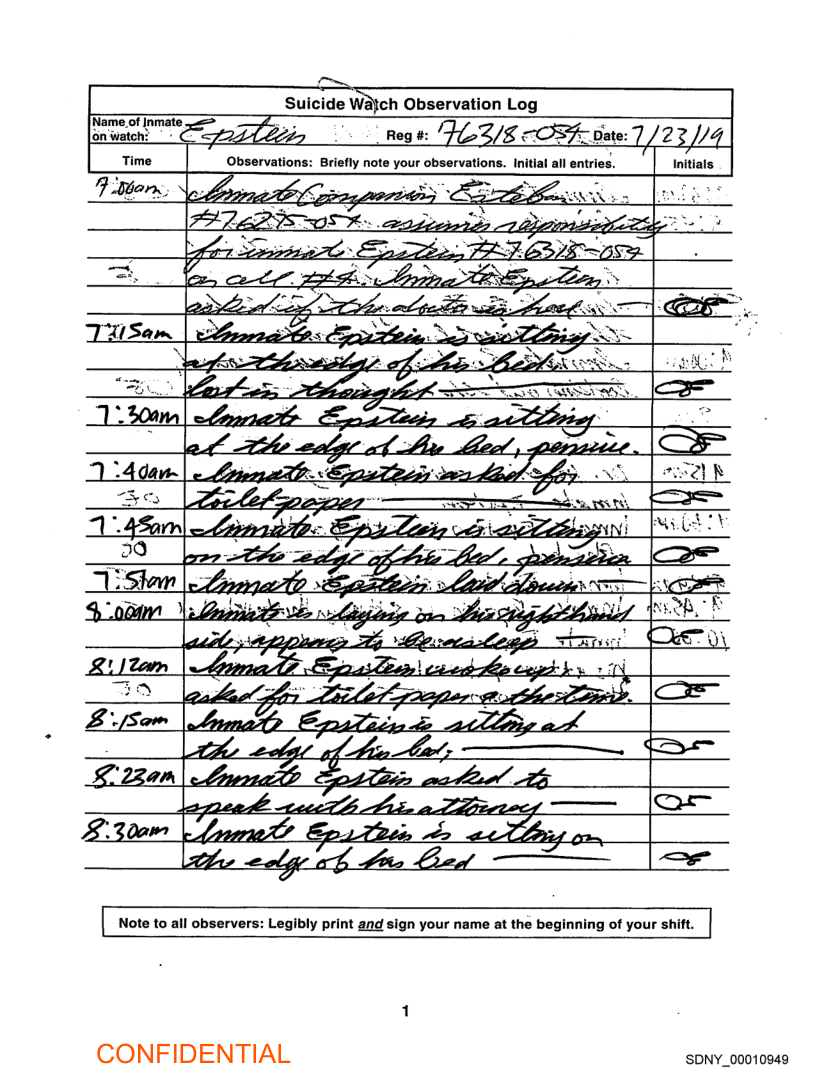 Suicide Watch Observation Log
Name of Inmate on watch: Epstein Reg #: 76318-054 Date: 7/23/19
Time Observations: Briefly note your observations. Initial all entries. Initials
7:06am Inmate Companion Esteban
#76275-054 assumes responsibility
for inmate Epstein #76318-054
on cell #4. Inmate Epstein
asked if the doctor is here
7:15am Inmate Epstein is sitting
at the edge of his bed
lost in thought
7:30am Inmate Epstein is sitting
at the edge of his bed, pensive.
7:40am Inmate Epstein asked for
toilet-paper
7:45am Inmate Epstein is sitting
on the edge of his bed, pensive
7:51am Inmate Epstein laid down
8:00am Inmate is laying on his right hand
side, appears to be asleep
8:12am Inmate Epstein woke up
asked for toilet-paper @ the time.
8:15am Inmate Epstein is sitting at
the edge of his bed;
8:23am Inmate Epstein asked to
speak with his attorney
8:30am Inmate Epstein is sitting on
the edge of his bed
Note to all observers: Legibly print and sign your name at the beginning of your shift.
1
CONFIDENTIAL
SDNY_00010949